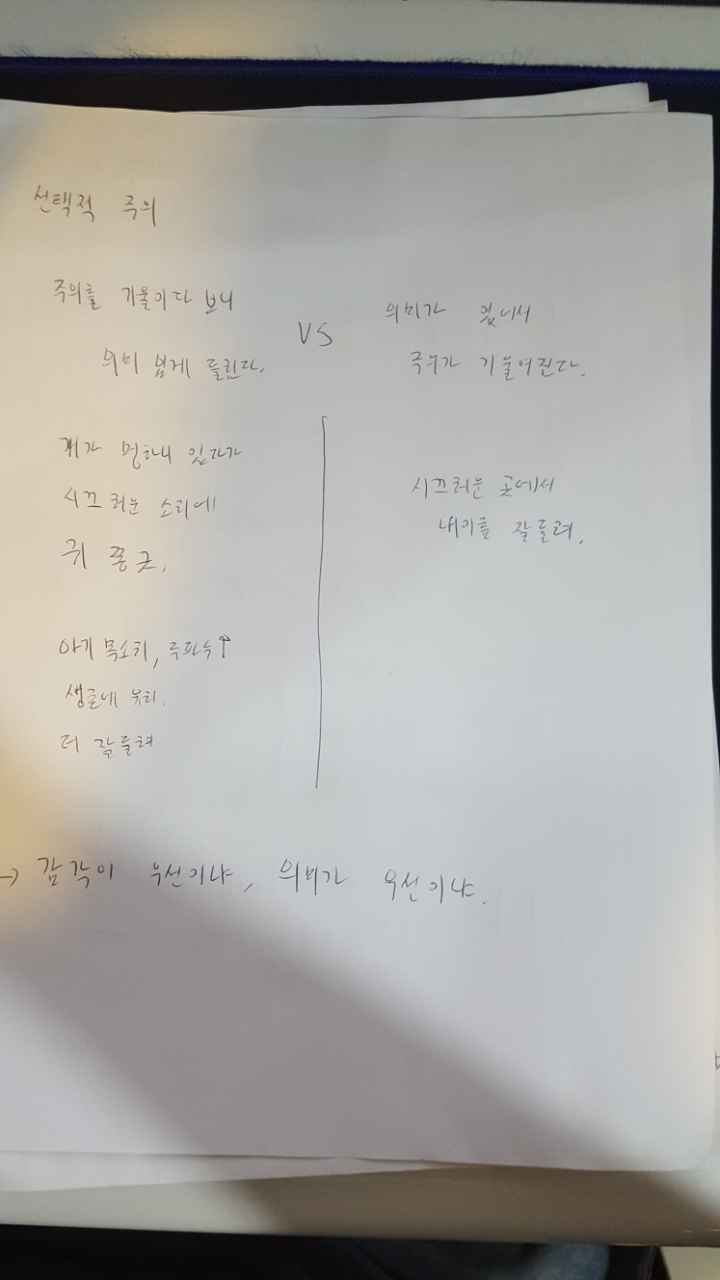 선택적 주의
주의를 기울이다 보니
의미 있게 들린다.
VS
의미가 있어서
주의가 기울여진다.
개가 멍하니 있다가
시끄러운 소리에
귀 쫑긋.
아기 목소리, 주파수↑
생존에 유리.
더 잘들려
시끄러운 곳에서
내이름 잘들려.
→ 감각이 우선이냐, 의미가 우선이냐.